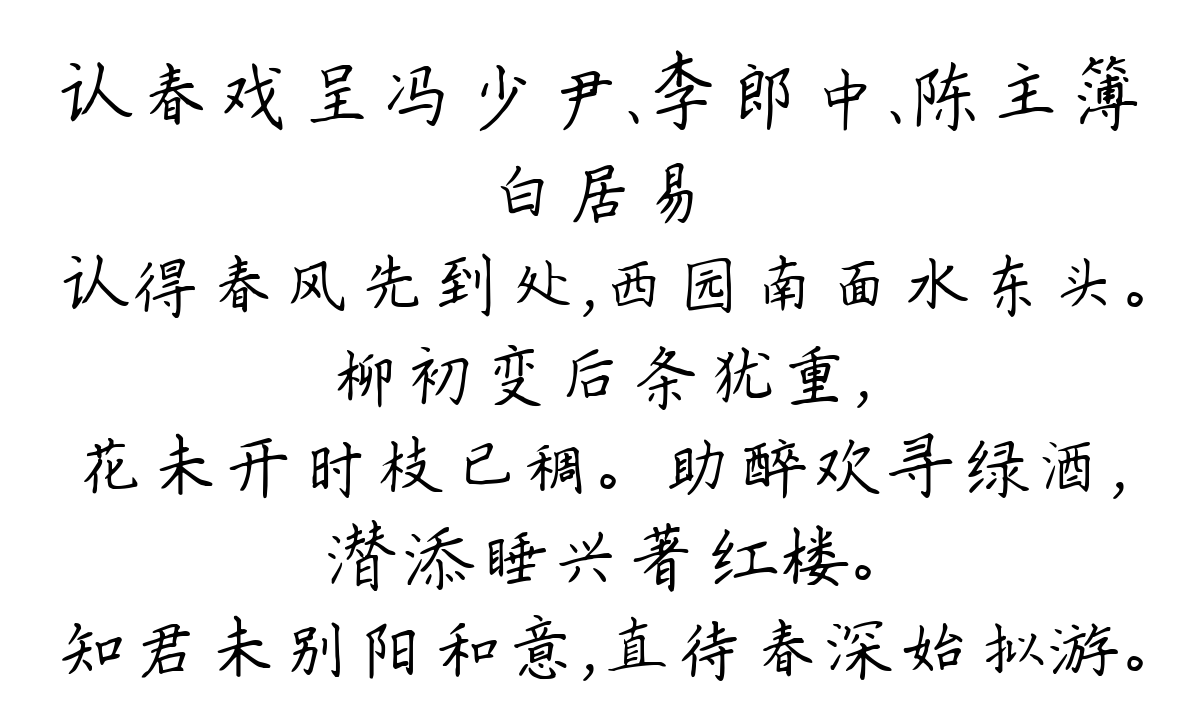 认春戏呈冯少尹、李郎中、陈主簿
白居易
认得春风先到处,西园南面水东头。
柳初变后条犹重,
花未开时枝已稠。助醉欢寻绿酒,
潜添睡兴著红楼。
知君未别阳和意,直待春深始拟游。